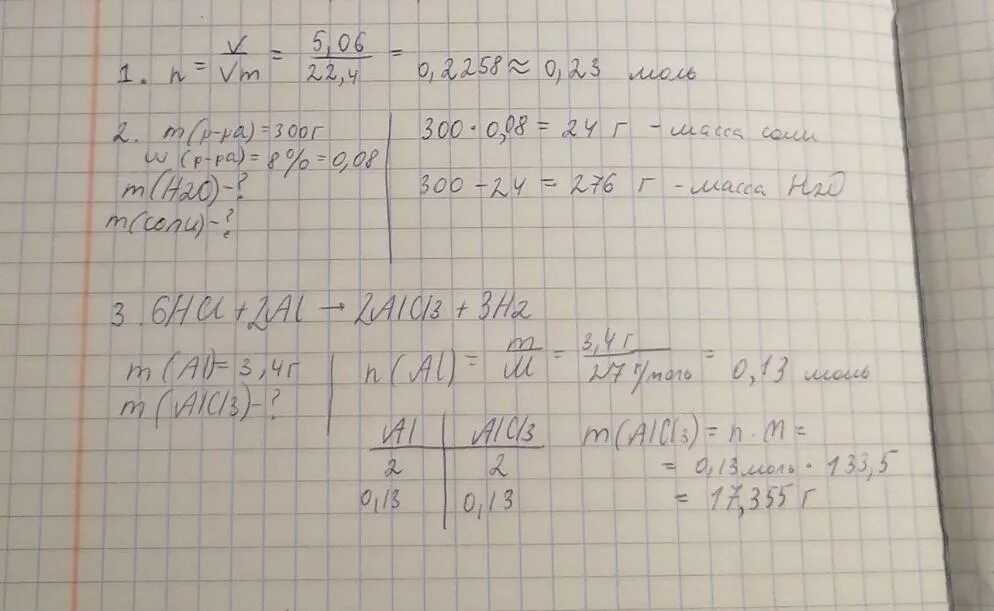 1. n = V/Vm = 5,06/22,4 = 0,2258 ≈ 0,23 моль
2. m(р-ра)=300г
w(р-ра)=8%=0,08
m(H2O)-?
m(соли)-?
300·0,08 = 24 г - масса соли
300-24 = 276 г - масса H2O
3. 6HCl+2Al → 2AlCl3+3H2
m(Al)=3,4г
m(AlCl3)-?
n(Al) = m/M = 3,4г/27г/моль = 0,13 моль
Al AlCl3
2 2
0,13 0,13
m(AlCl3) = n·M =
= 0,13моль·133,5
= 17,355 г